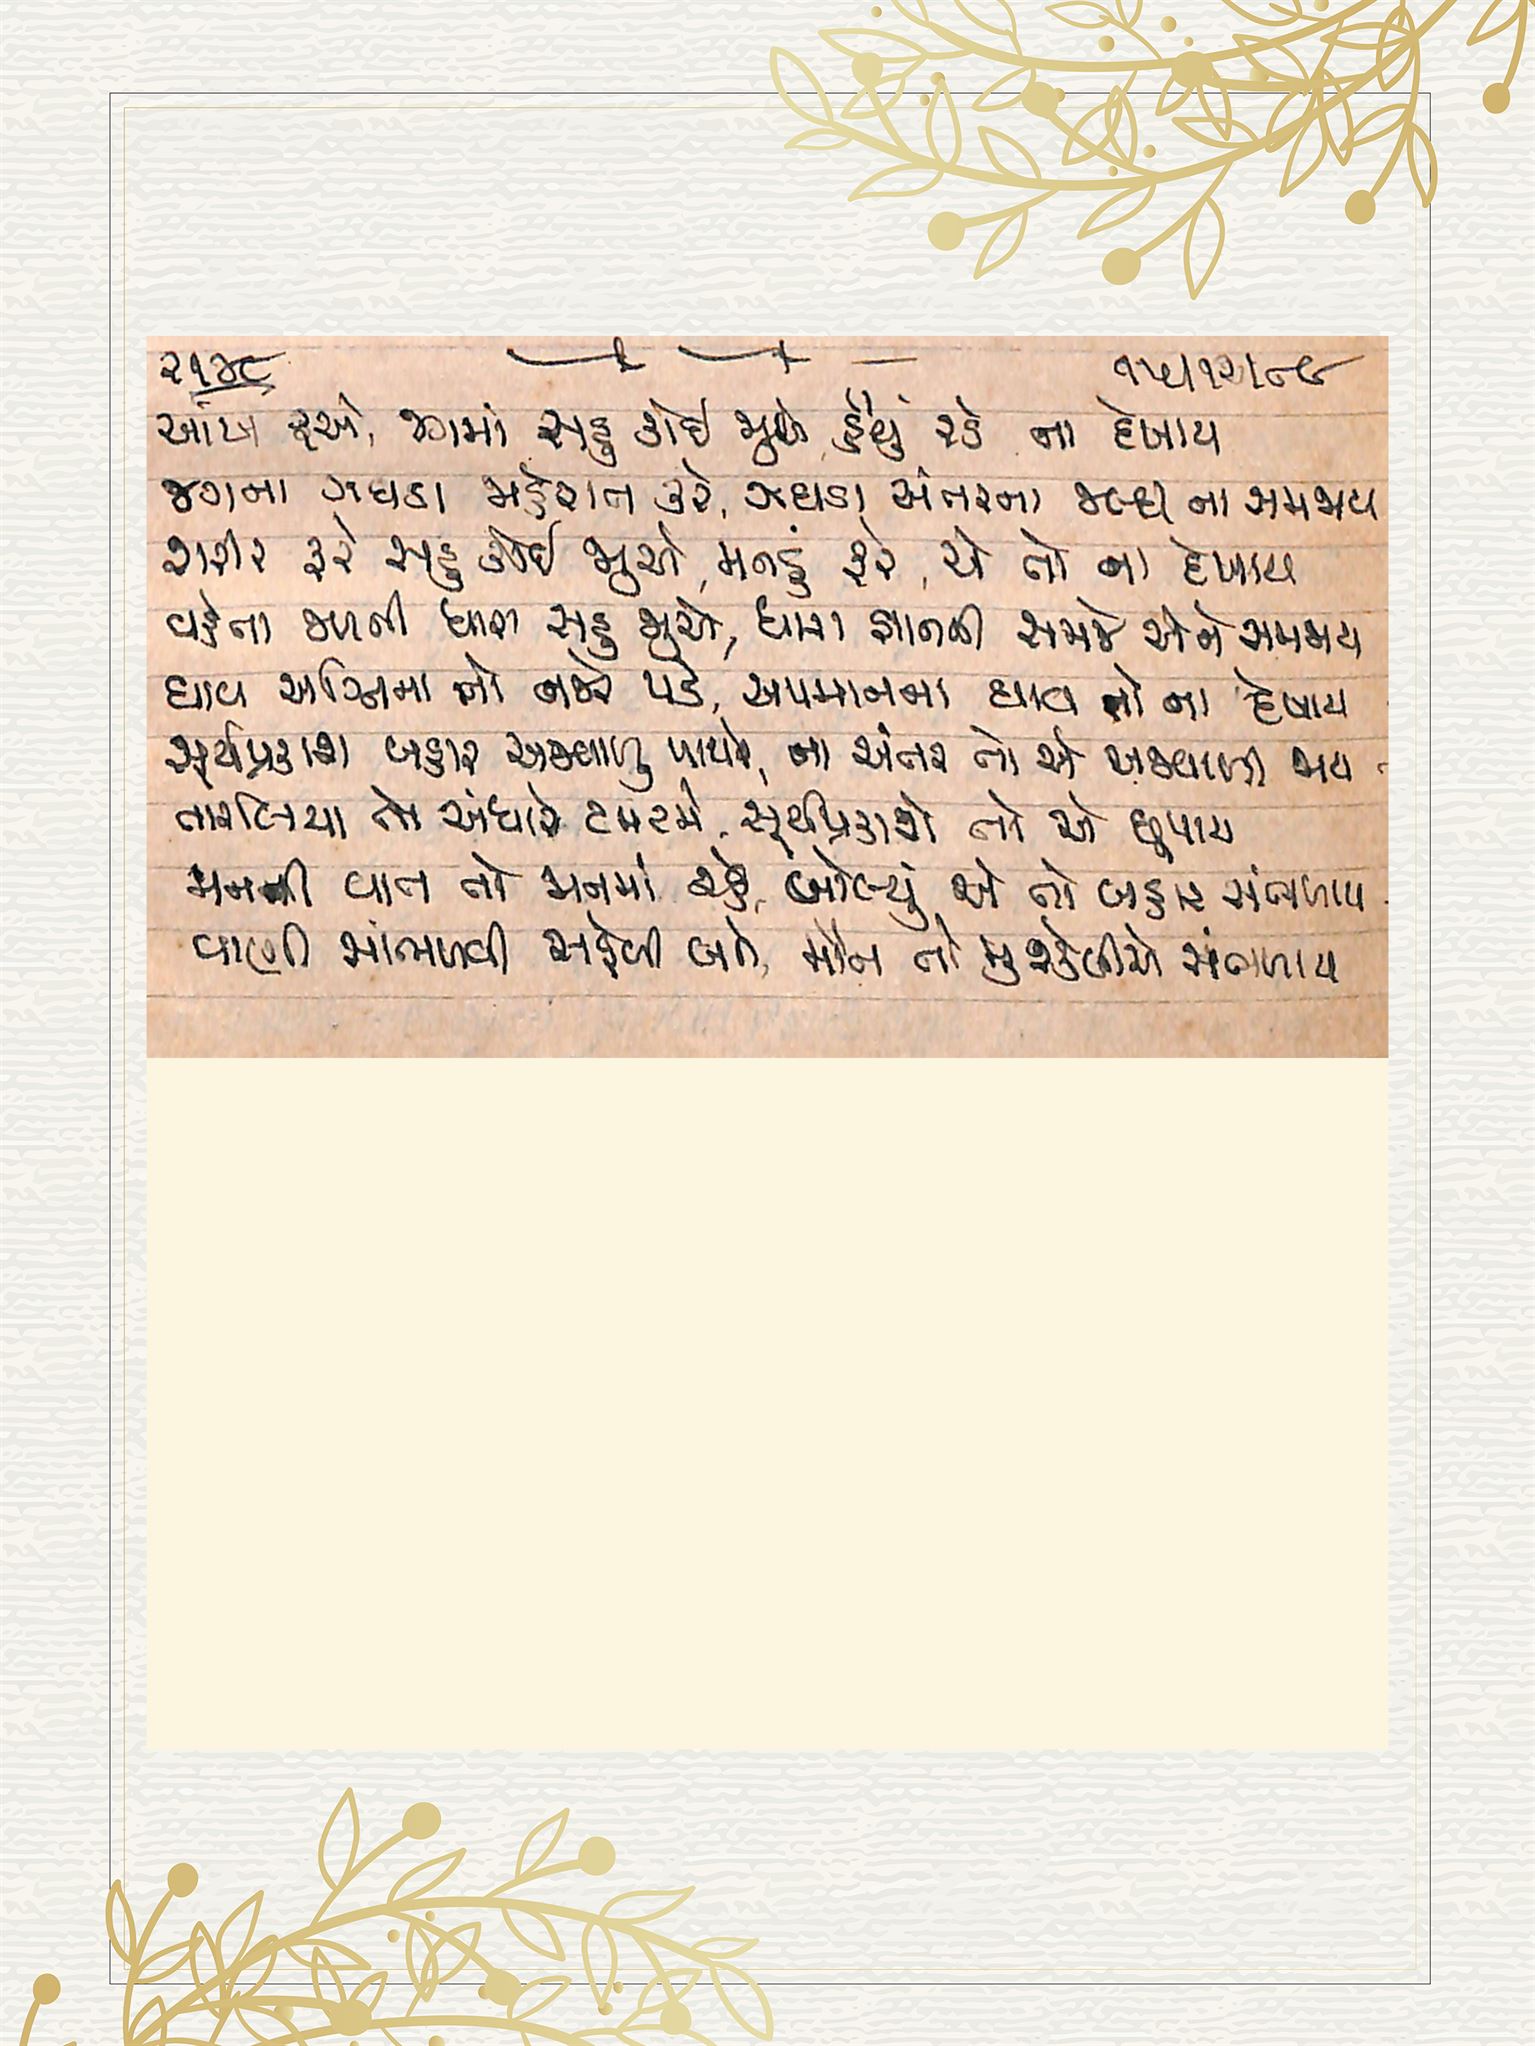 ૨૧૪૮ ૧૫/૧૨/૮૯
આંખ રૂએ, જગમાં સહુ કોઈ જુએ, હૈયું રડે ના દેખાય
જગના ઝઘડા મહેરાત કરે, ઝઘડા અંતરના જલ્દી ના સમજાય
શરીર ફરે સહુ કોઈ જુએ, મનડું ફરે, એ તો ના દેખાય
વહેતા જળની ધારા સહુ જુએ, ધારા જ્ઞાનની સમજે એને સમજાય
ઘાવ અગ્નિના તો નજરે પડે, અપમાનના ઘાવ તો ના દેખાય
સૂર્યપ્રકાશ બહાર અજવાળું પાથરે, ના અંતર તો એ અજવાળી જાય
તારલિયા તો અંધારે ટમટમે, સૂર્યપ્રકાશે તો એ છુપાય
મનની વાત તો મનમાં રહે, બોલ્યું એ તો બહાર સંભળાય
વાણી સાંભળવી સહેલી બને, મૌન તો મુશ્કેલીએ સંભળાય